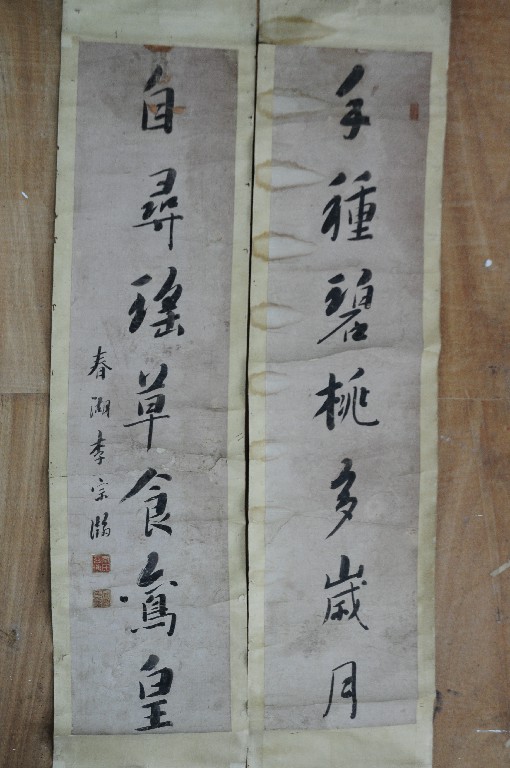 手種碧桃多歲月
自尋瑤草食鸞皇
春湖李宗瀚